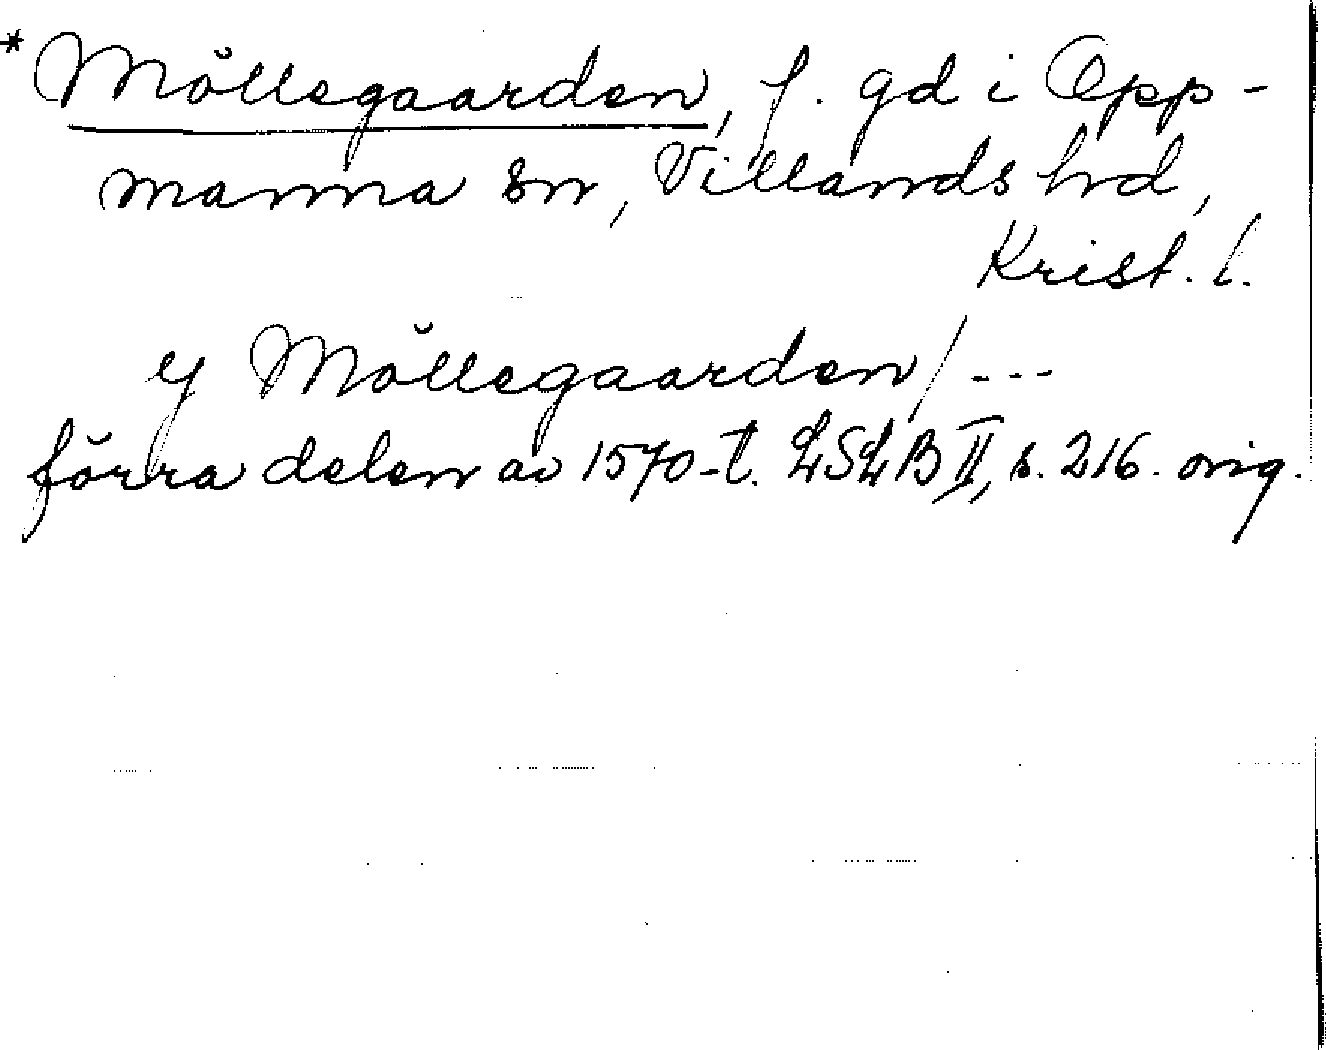 *Möllegaarden, f. gd i Opp-
manna sn, Villands hd,
Krist. l.
y Möllegaarden/---
förra delen av 1570-t. LSLB II, s. 216. orig.